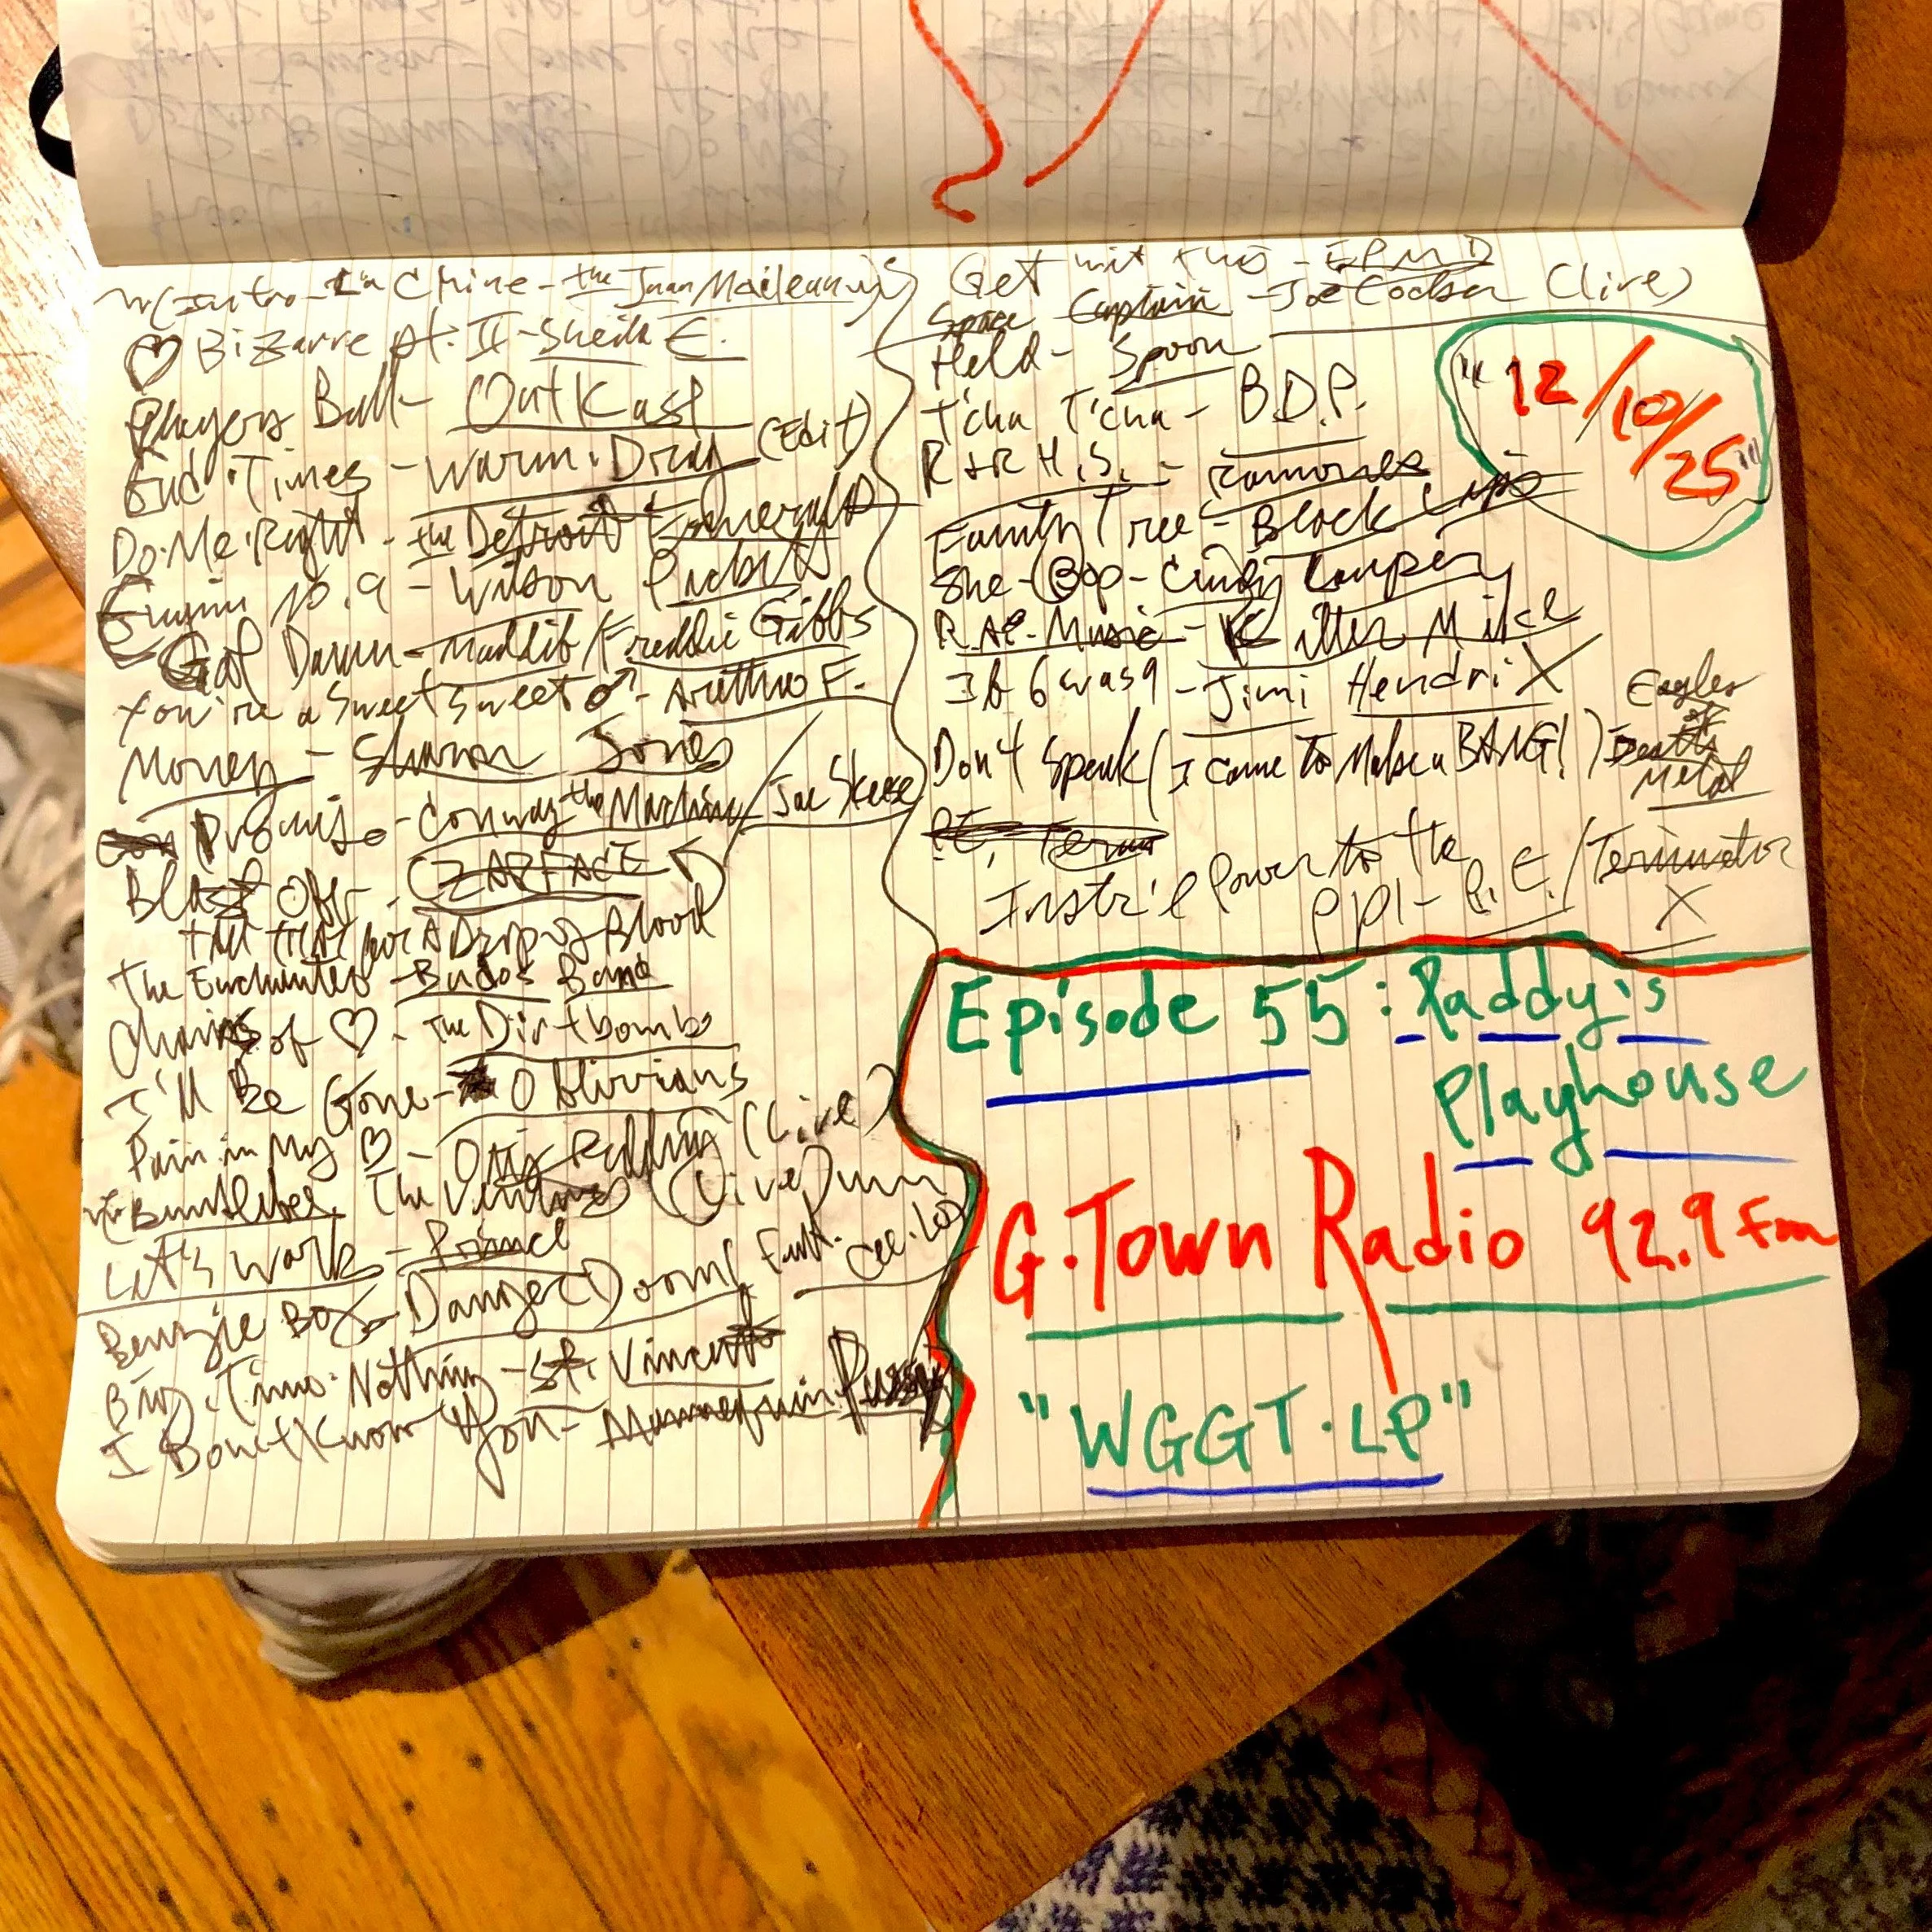 (Intro - La Chine - the Juan Macleans)
♡ Bizarre pt. II - Sheila E.
Players Ball - OutKast
End Times - Warm Drag (Edit)
Do Me Right - the Detroit Emeralds
Engine No. 9 - Wilson Pickett
God Damn - Madlib/Freddie Gibbs
You're a Sweet Sweet ♂ - Aretha F.
Money - Sharon Jones
Promise - Conway the Machine / Joe Skeese
Blast Off - CZARFACE
Kill for A Drop of Blood
The Enchanter - Budos Band
Chains of ♡ - The Dirtbombs
I'll Be Gone - Oblivians
Pain in My ♡ - Otis Redding (Live)
Bumblebee The Ventures (Live)
Let's Work - Prince
Benzie Box - Danger(Doom) feat. Cee-Lo
Big Time Nothing - St. Vincent
I Don't Know You - Mannequin Pussy
Get wit this - EPMD
Space Captain - Joe Cocker (live)
Held - Spoon
T'cha T'cha - B.D.P.
R + R H.S. - Ramones
Family Tree - Black Lips
She-Bop - Cindy Lauper
R.A.P. Music - Killer Mike
If 6 was 9 - Jimi Hendrix
Don't Speak (I Came to Make a BANG!) Eagles
of
Death
Metal
P.E. Term
Instr'l Power to the
PPl - P.E./Terminator
X
"12/10/25"
Episode 55: Raddy's
Playhouse
G-Town Radio 92.9 Fm
"WGGT-LP"